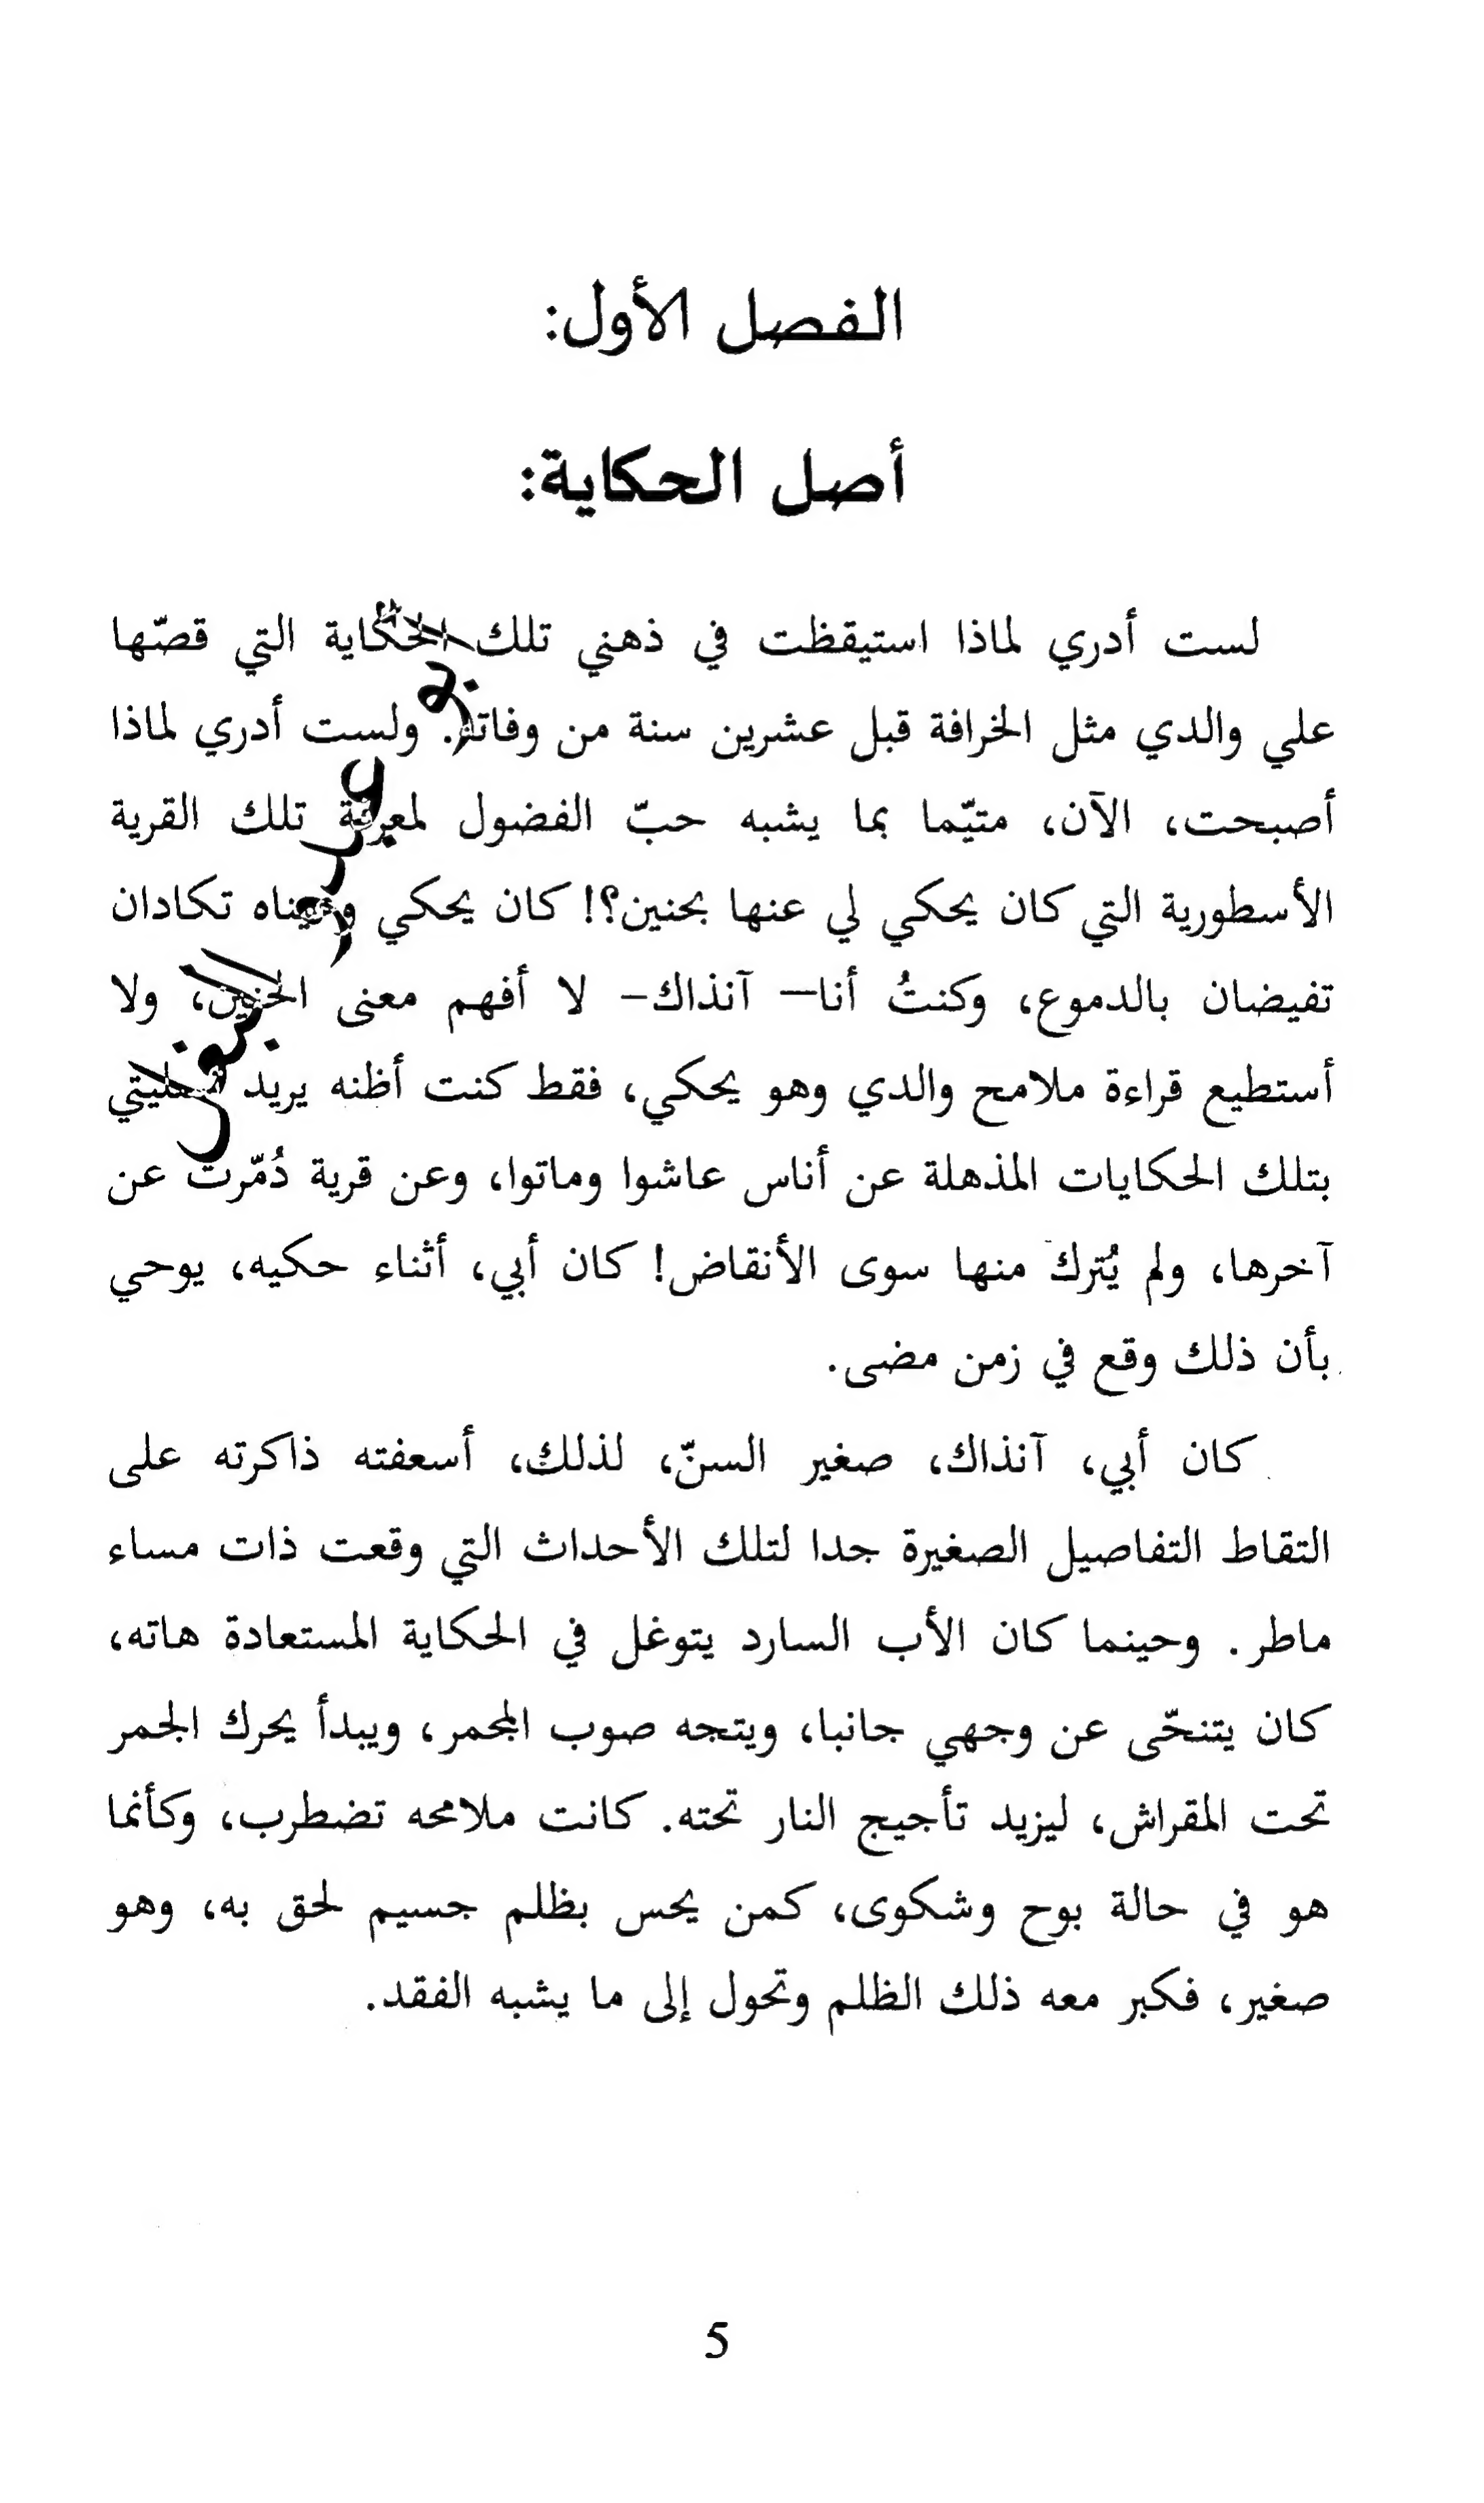 الفصل الأول:
أصل الحكاية:
لست أدري لماذا استيقظت في ذهني تلك الحكاية التي قصّها
علي والدي مثل الخرافة قبل عشرين سنة من وفاته. ولست أدري لماذا
أصبحت، الآن، متيّما بما يشبه حبّ الفضول لمعرفة تلك القرية
الأسطورية التي كان يحكي لي عنها بحنين؟! كان يحكي وعيناه تكادان
تفيضان بالدموع، وكنتُ أنا— آنذاك– لا أفهم معنى الحنين، ولا
أستطيع قراءة ملامح والدي وهو يحكي، فقط كنت أظنه يريد تسليتي
بتلك الحكايات المذهلة عن أناس عاشوا وماتوا، وعن قرية دُمّرت عن
آخرها، ولم يُترك منها سوى الأنقاض! كان أبي، أثناء حكيه، يوحي
بأن ذلك وقع في زمن مضى.
كان أبي، آنذاك، صغير السنّ، لذلك، أسعفته ذاكرته على
التقاط التفاصيل الصغيرة جدا لتلك الأحداث التي وقعت ذات مساء
ماطر. وحينما كان الأب السارد يتوغل في الحكاية المستعادة هاته،
كان يتنحّى عن وجهي جانبا، ويتجه صوب المجمر، ويبدأ يحرك الجمر
تحت المقراش، ليزيد تأجيج النار تحته. كانت ملامحه تضطرب، وكأنما
هو في حالة بوح وشكوى، كمن يحس بظلم جسيم لحق به، وهو
صغير، فكبر معه ذلك الظلم وتحول إلى ما يشبه الفقد.
5